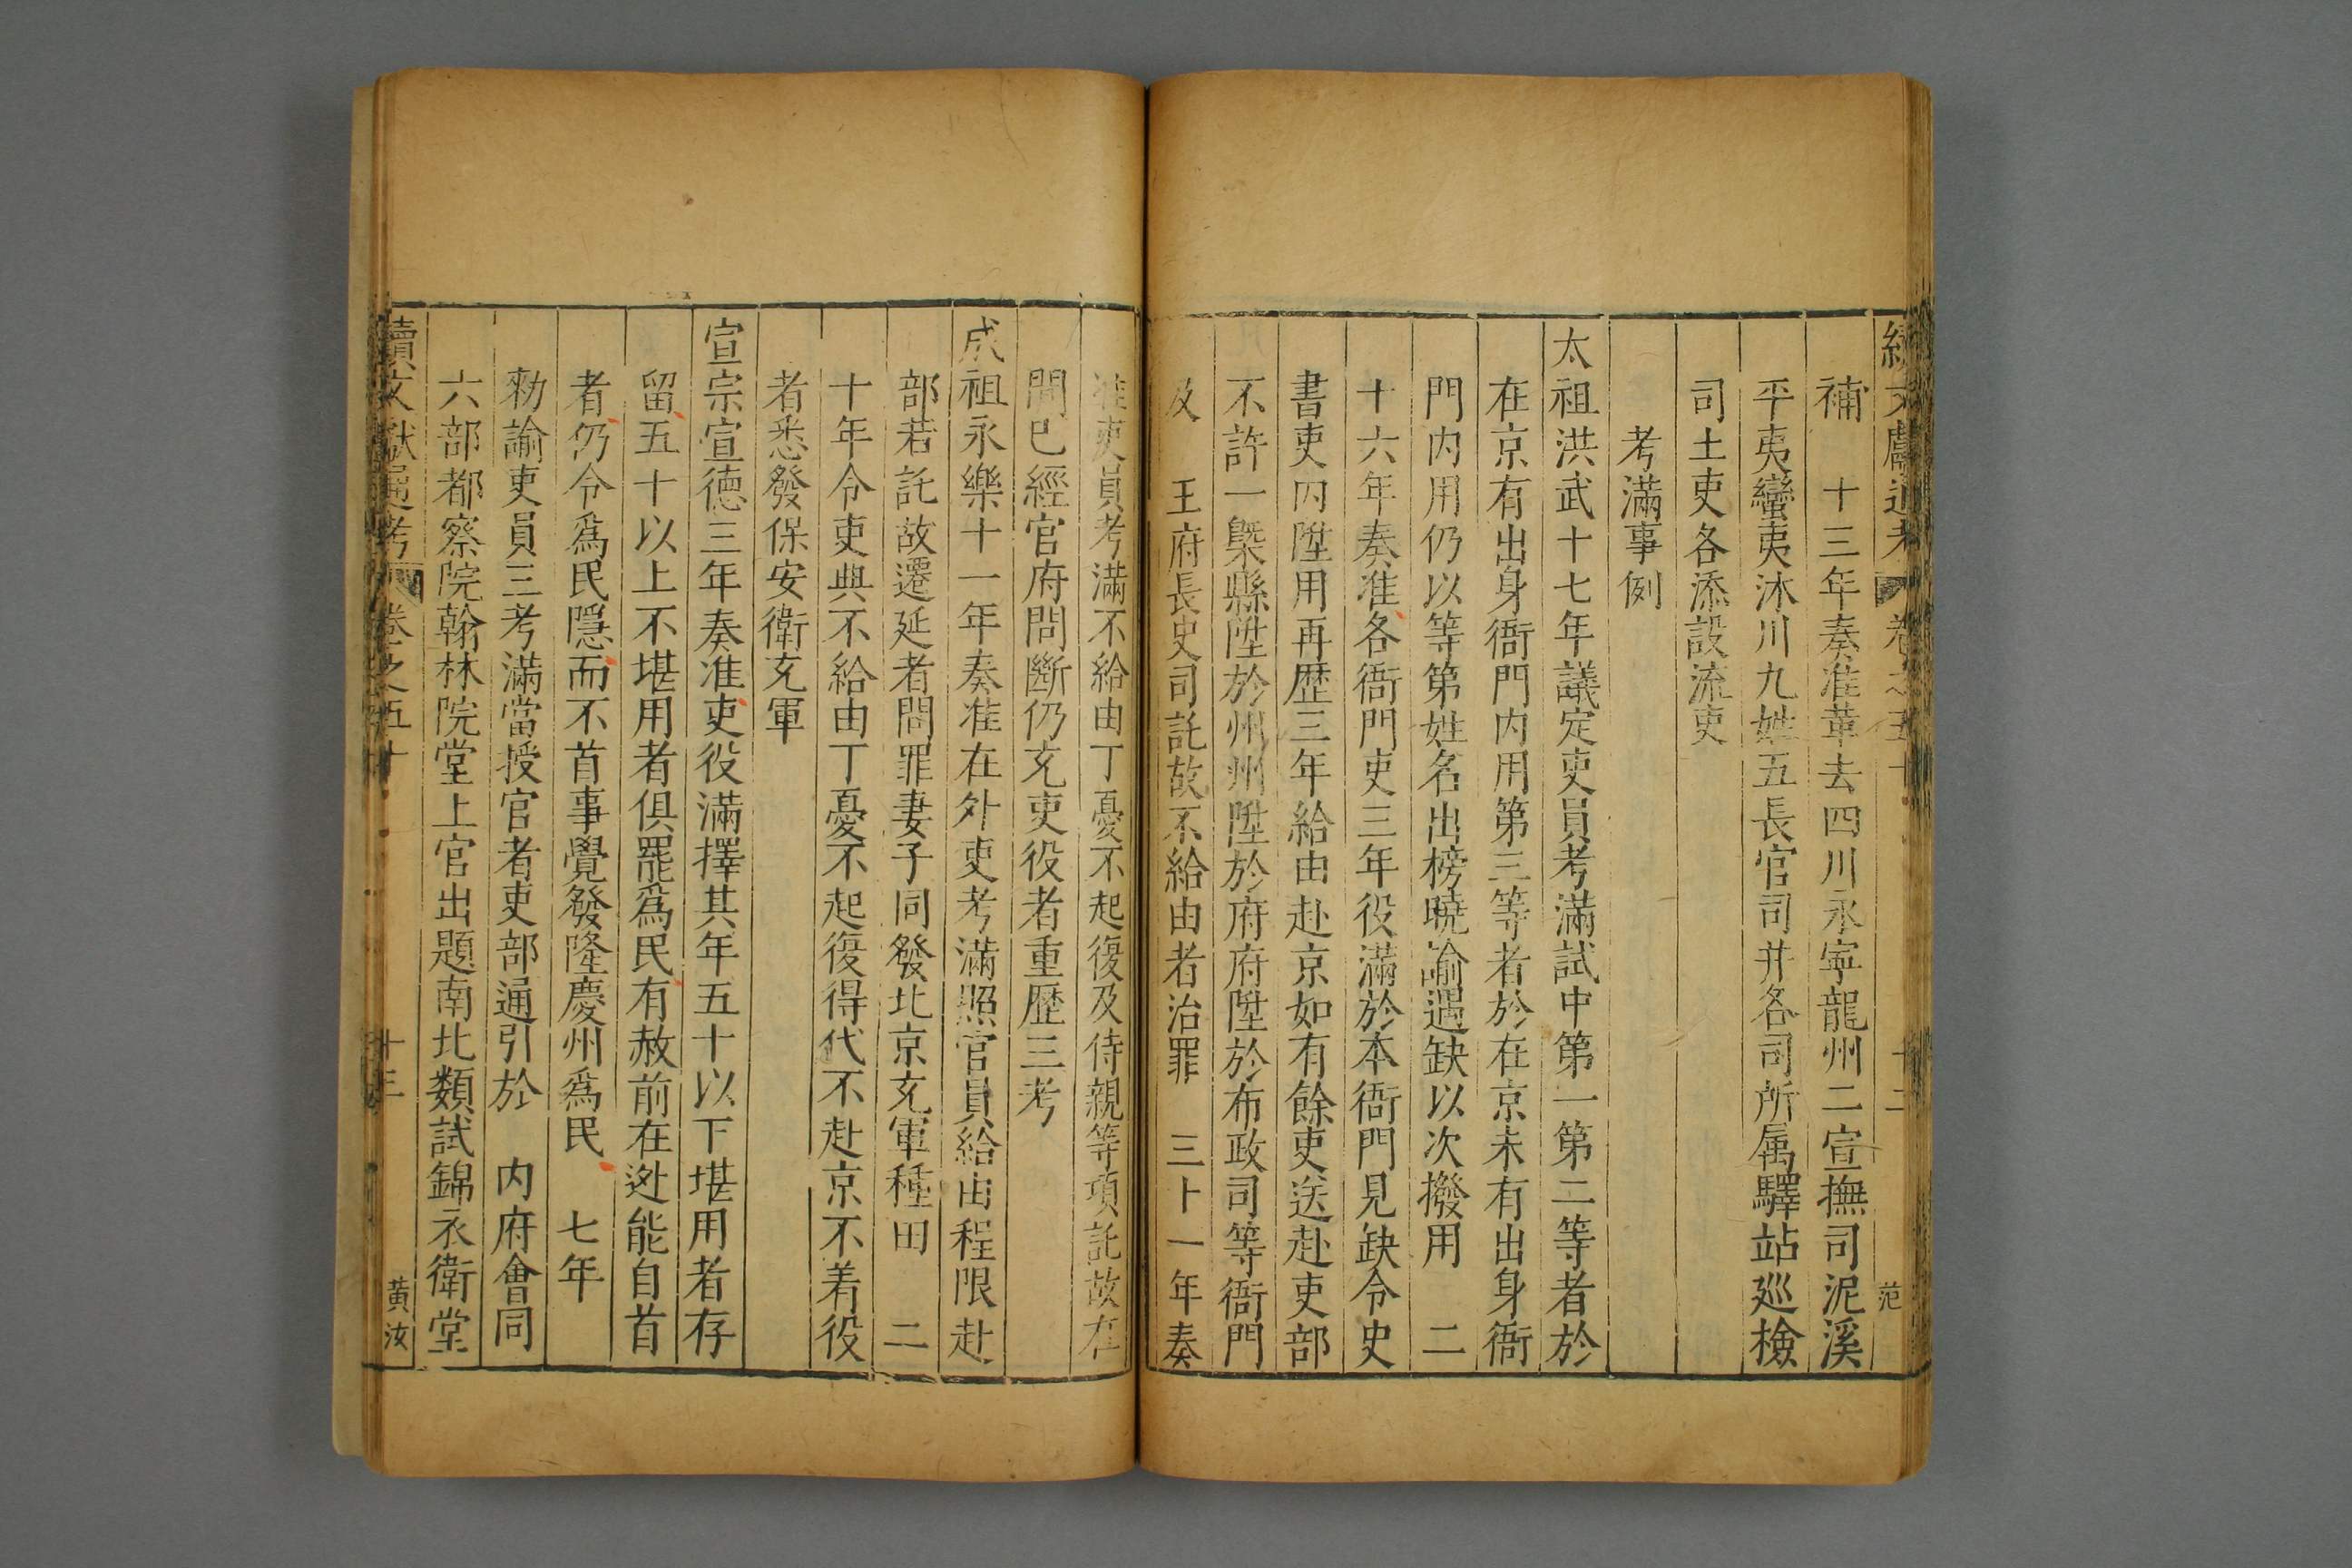 續文獻通考 卷之五十 十二 范
補 十三年奏准革去四川永寧龍州二宣撫司泥溪
平夷蠻夷沐川九姓五長官司并各司所属驛站廵檢
司土吏各添設流吏
考滿事例
太祖洪武十七年議定吏員考滿試中第一第二等者於
在京有出身衙門内用第三等者於在京未有出身衙
門内用仍以等第姓名出榜曉諭遇缺以次撥用 二
十六年奏准各衙門吏三年役滿於本衙門見缺令史
書吏内陞用再歴三年給由赴京如有餘吏送赴吏部
不許一槩縣陞於州州陞於府府陞於布政司等衙門
及 王府長史司託故不給由者治罪 三十一年奏
准吏員考滿不給由丁憂不起復及侍親等項託故在
閒已經官府問斷仍充吏役者重歴三考
成祖永樂十一年奏准在外吏考滿照官員給由程限赴
部若託故遷延者問罪妻子同發北京充軍種田 二
十年令吏典不給由丁憂不起復得代不赴京不着役
者悉發保安衛充軍
宣宗宣德三年奏准吏役滿擇其年五十以下堪用者存
留五十以上不堪用者俱罷爲民有赦前在逃能自首
者仍令爲民隱而不首事覺發隆慶州爲民 七年
勑諭吏員三考滿當授官者吏部通引於 内府會同
六部都察院翰林院堂上官出題南北類試錦衣衛堂
續文獻通考 卷之五十 十三 黄汝